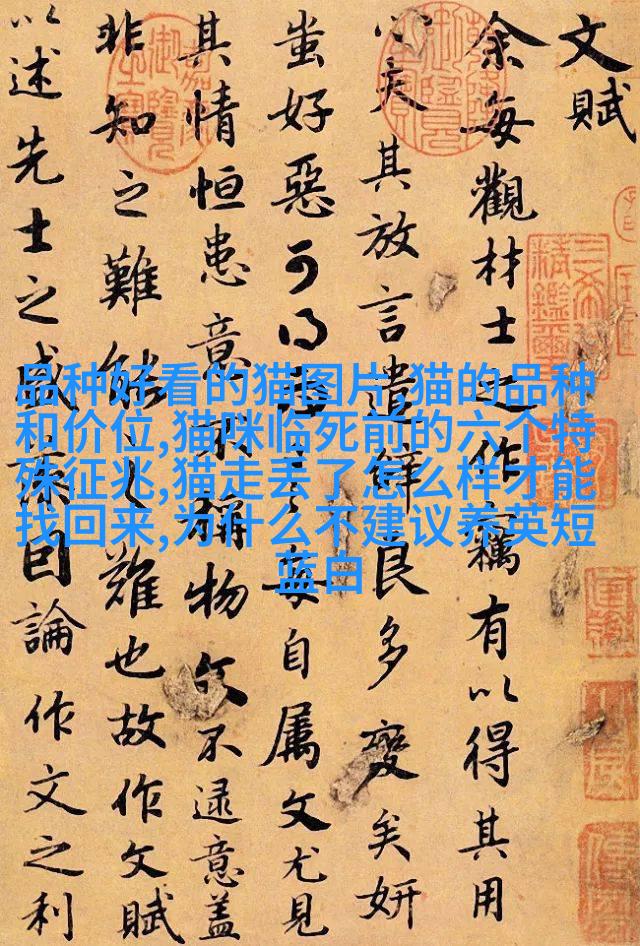 文賦
余每觀材士之作竊有以得其用
心夫其放言遣辞良多變矣妍
蚩好惡可得而言每自属文尤見
其情恒患意不稱物文不逮意盖
非知之難能之難也故作文賦
以述先士之盛藻因論作文之利
品种好看的猫图片,猫的品种
和价位,猫咪临死前的六个特
殊征兆,猫走丢了怎么样才能
找回来,为什么不建议养英短
蓝白